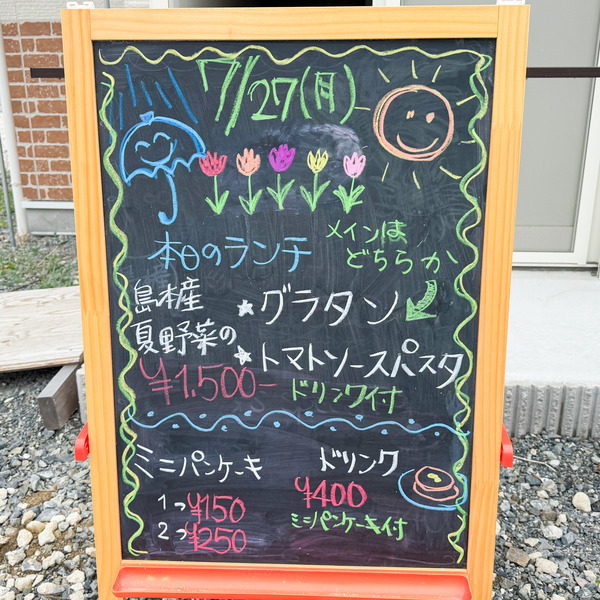 7/27(月)
本日のランチ
メインは
どちらか
島本産
夏野菜の
★グラタン
★トマトソースパスタ
¥1,500-
ドリンク付
ミニパンケーキ
1つ¥150
2つ¥250
ドリンク
¥400
ミニパンケーキ付